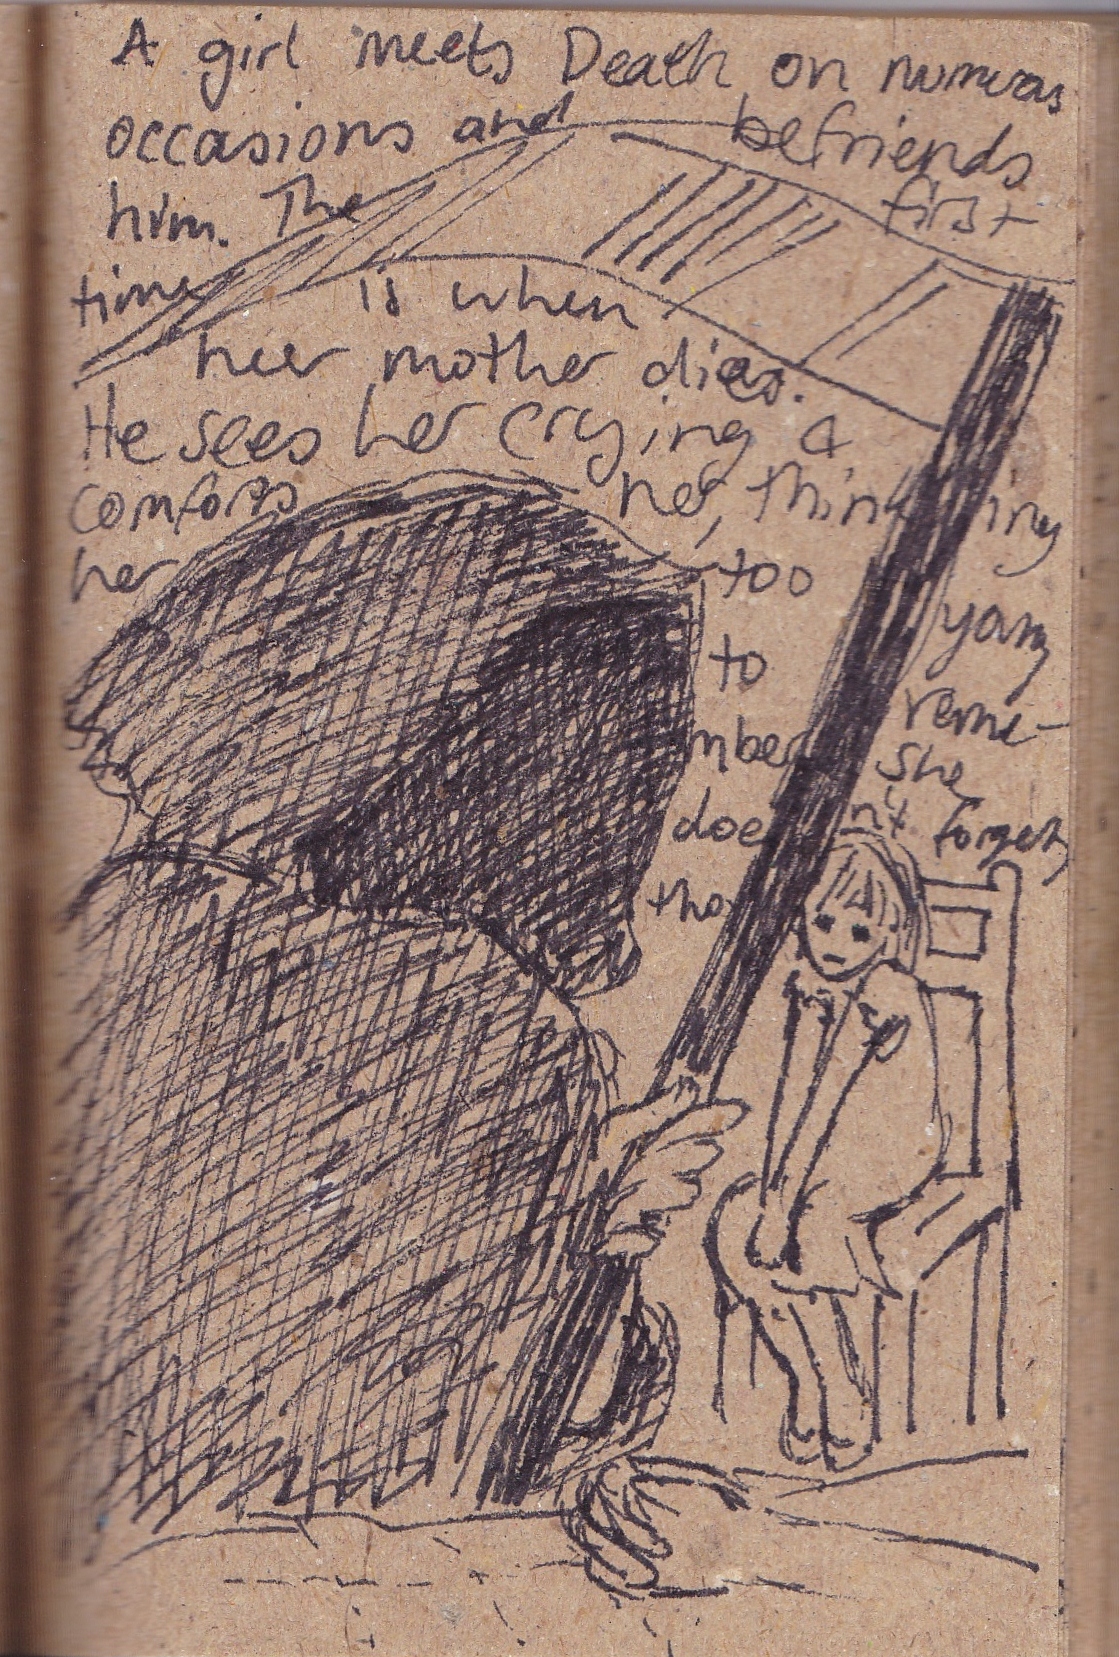 A girl meets Death on numerous
occasions and befriends
him. The first
time is when
heer mother dies.
He sees her crying &
comforts her, thinking
her too young
to reme-
mber she
doesn't forget,
tho